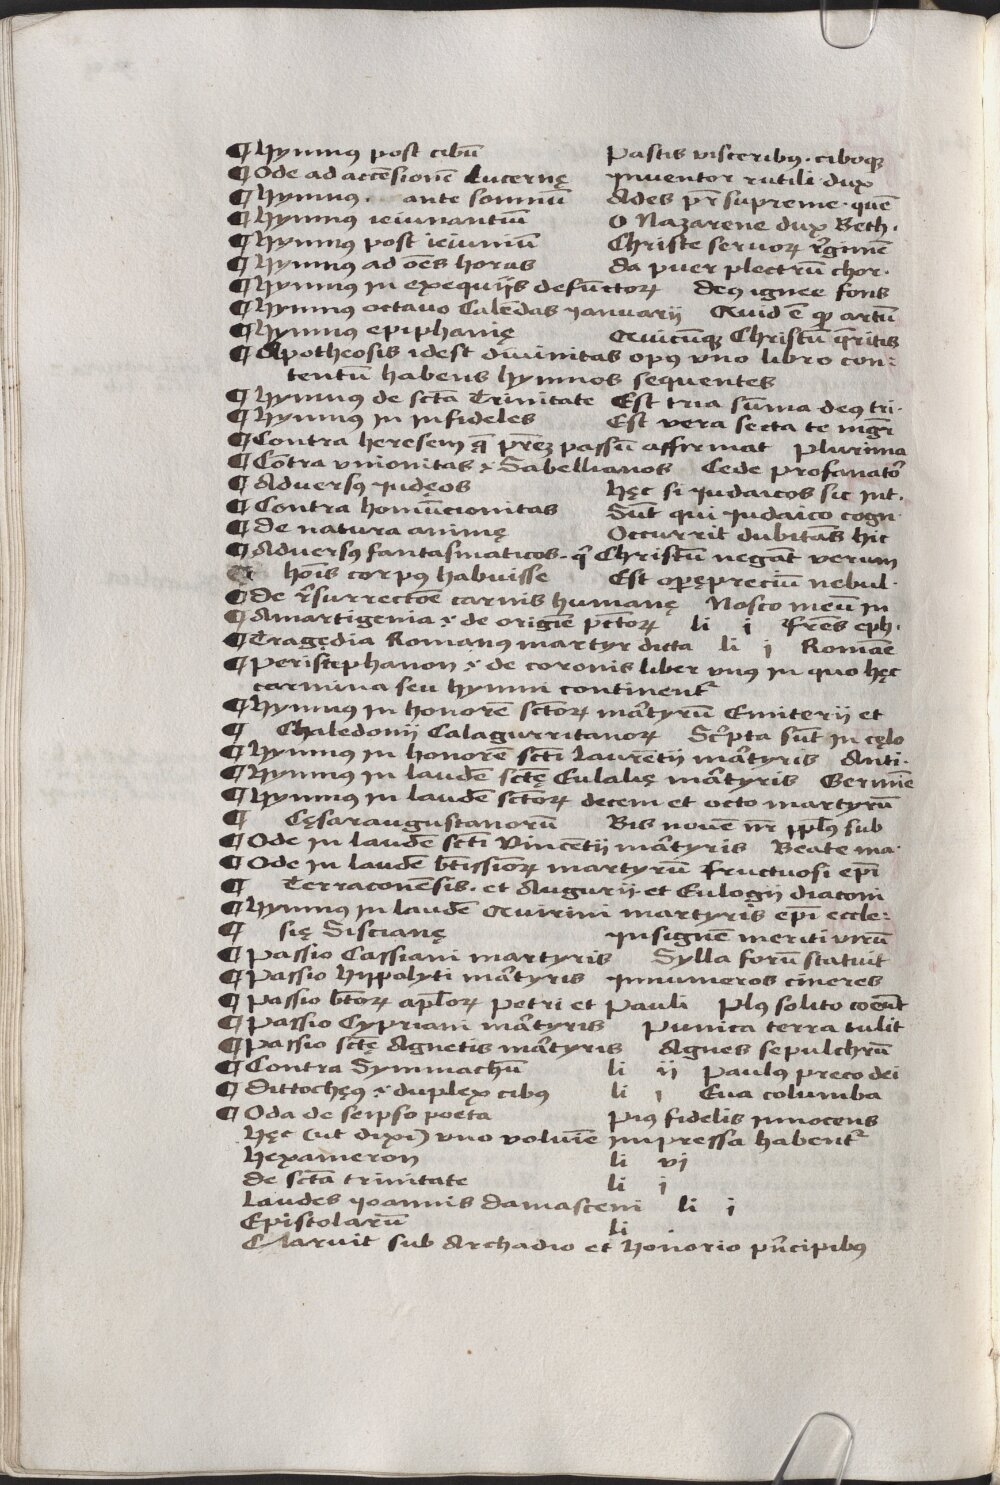 ¶ Hymnꝰ post cibū Pastis visceribꝰ. ciboqꝫ
¶ Ode ad accēsionē Lucernę Inuentor rutili dux
¶ Hymnꝰ. ante somnū Ades pr̄ supreme. quē
¶ Hymnꝰ ieiunantiū O Nazarene dux Beth.
¶ Hymnꝰ post ieiuniū Christe seruoꝝ r̄gimē
¶ Hymnꝰ ad oēs horas da puer plectrū chor.
¶ Hymnꝰ in exequijs defūctoꝝ deꝰ ignee fons
¶ Hymnꝰ octauo Calēdas ianuarij Quid ē ꝙ artū
¶ Hymnꝰ epiphanię Quicūqꝫ Christū q̄ritis
¶ Apotheosis idest diuinitas opꝰ vno libro con:
tentū habens hymnos sequentes
¶ Hymnꝰ de sctā Trinitate Est tria sūma deꝰ tri.
¶ Hymnꝰ in infideles Est vera secta te mgr̄i
¶ Contra heresem q̄ pr̄eꝫ passū affirmat Plurima
¶ Contra vnionitas ⁊ Sabellianos Cede profanatoʳ
¶ Aduersꝰ iudęos Hęc si iudaicos sic int.
¶ Contra homūcionitas Sūt qui iudaico cogn.
¶ De natura animę Occurrit dubitās hic
¶ Aduersꝰ fantasmaticos. q̄ Christū negāt verum
hoīs corpꝰ habuisse Est opępreciū nebul.
¶ De r̄surrectōe carnis humanę Nosco meū in
¶ Amartigenia ⁊ de origīe pctōꝝ li i Frēs eph.
¶ Tragędia Romanus martyr dicta li i Romāe
¶ Peristephanon ⁊ de coronis liber vnꝰ in quo hęc
carmina seu hymni continentʳ
¶ Hymnꝰ in honorē sctōꝝ mārtyrū Emiterij et
¶ Chaledonij Calagurritanoꝝ Scʳpta sūt in cęlo
¶ Hymnꝰ in honorē sctī Laurētij mārtyris Anti.
¶ Hymnꝰ in laudē sctę Eulalię mārtyris Germīe
¶ Hymnꝰ in laudē sctōꝝ decem et octo martyrū
¶ Cęsaraugustanorū Bis nouē nr̄ ppl̄s sub
¶ Ode in laudē sctī Vincētij mārtyris Beate ma.
¶ Ode in laudē btīssioꝝ martyrū Fructuosi epī
¶ Terraconēsis. et Augurij et Eulogij diaconi
¶ Hymnꝰ in laudē Quirini martyris epī eccle:
¶ się Siscianę Insignē meriti virū
¶ Passio Cassiani martyris Sylla forū statuit
¶ Passio Hippolyti mārtyris Innumeros cineres
¶ Passio btōꝝ apl̄oꝝ Petri et Pauli Plꝰ solito coeūt
¶ Passio Cypriani mārtyris Punica terra tulit
¶ Passio sctę Agnetis mārtyris Agnes sepulchrū
¶ Contra Symmachū li ij Paulꝰ preco dei
¶ Dittochęꝰ ⁊ duplex cibꝰ li i Eua columba
¶ Oda de seipso poeta Piꝰ fidelis innocens
Hęc (ut dixi) vno volumīe impressa habentʳ
Hexameron li vi
De sctā trinitate li i
Laudes ioannis damasceni li i
Epistolarū li .
Claruit sub Archadio et Honorio pn̄cipibꝰ